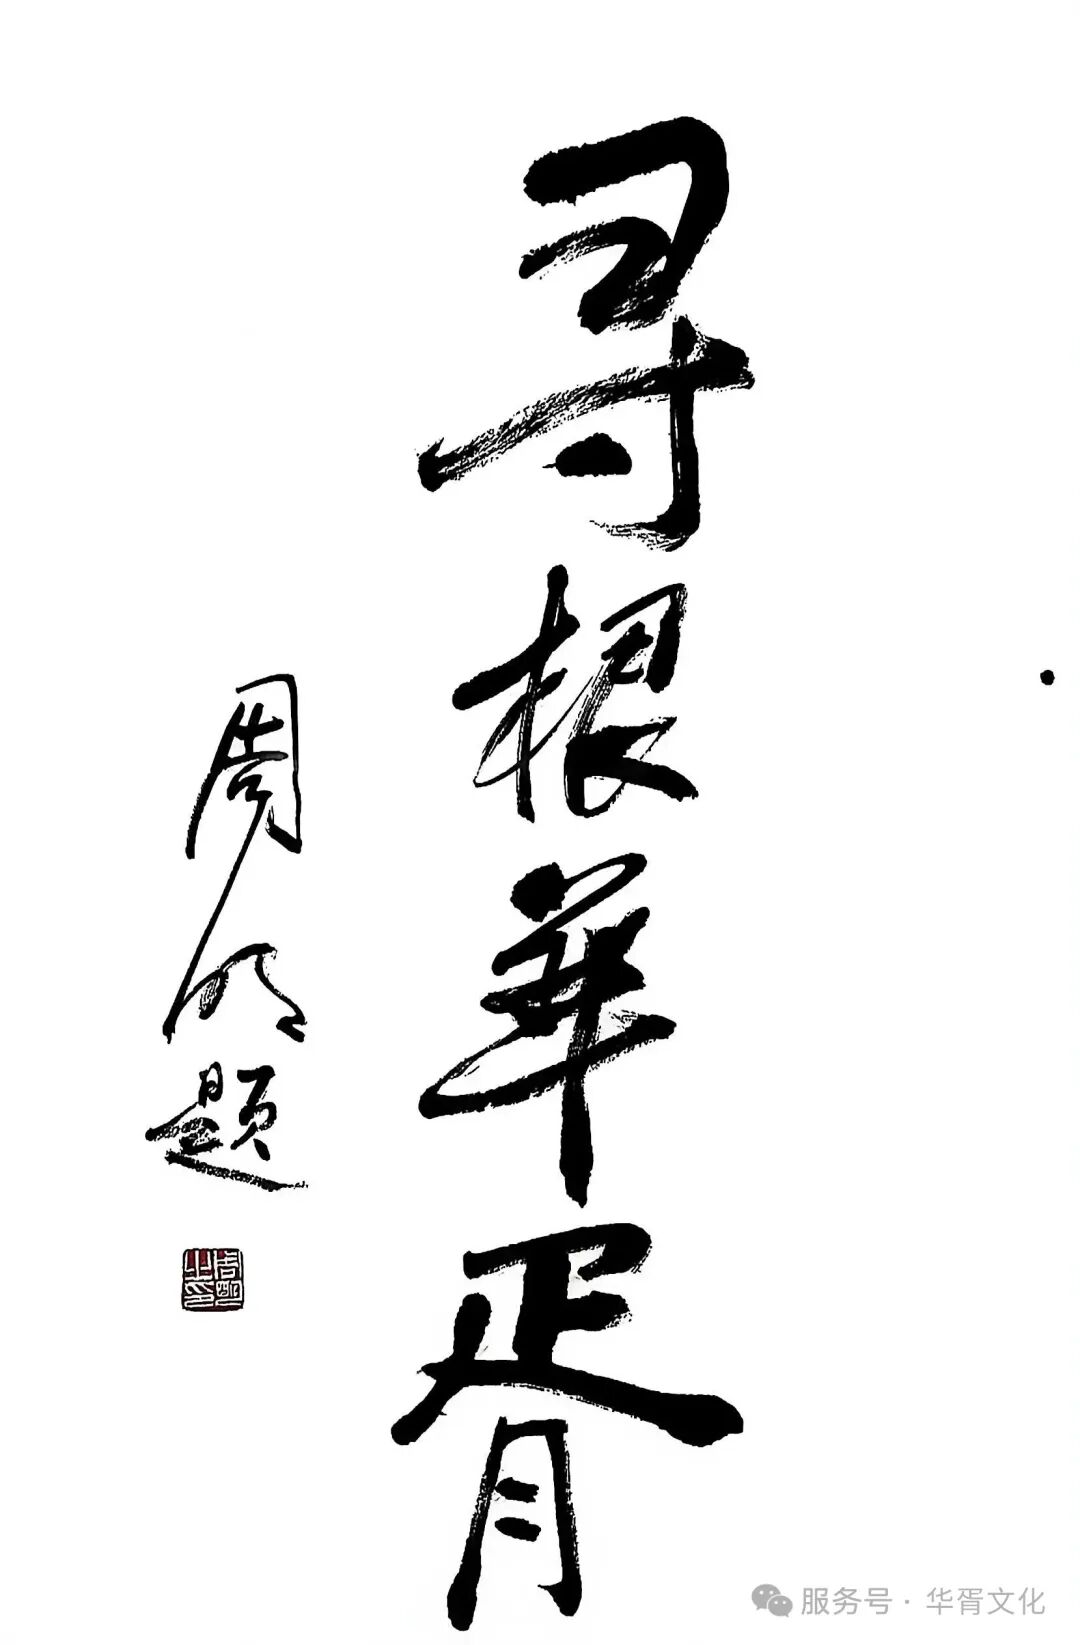 寻根华胥
周明题
服务号 · 华胥文化